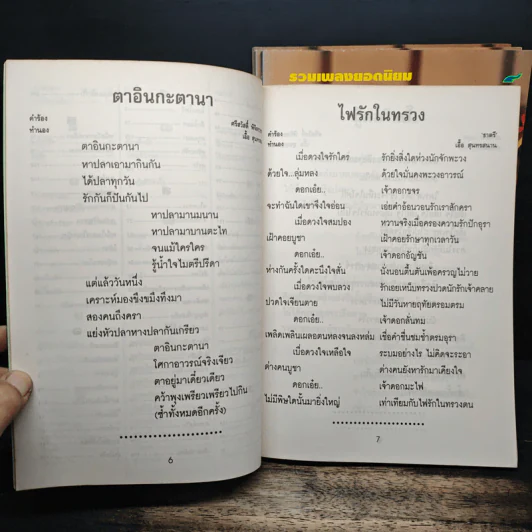 รวมเพลงยอดนิยม
ตาอินกะตานา
คำร้อง
ทำนอง
เอื้อ สุนทร
ตาอินกะตานา
หาปลาเอามากินกัน
ได้ปลาทุกวัน
รักกันก็ปันกันไป
หาปลามานมนาน
หาปลามาบานตะไท
จนแม้ใครใคร
รู้น้ำใจไมตรีปรีดา
แต่แล้ววันหนึ่ง
เคราะห์มองขึงขมึงทึงมา
สองคนถึงครา
แย่งหัวปลาหางปลากันเกรียว
ตาอินกะตานา
โศกาอารมณ์จริงเจียว
ตาอยู่มาเดี๋ยวเดียว
คว้าพุงเพรียวเพรียวไปกิน
(ซ้ำทั้งหมดอีกครั้ง)
6
ไฟรักในทรวง
คำร้อง ชาตรี
ทำนอง เอื้อ สุนทรสนาน
เมื่อดวงใจรักใคร่ รักยิ่งสิ่งใดห่วงนักจักพะวง
ด้วยใจ...ลุ่มหลง ด้วยใจมั่นคงพะวงอาวรณ์
ดอกเอ๋ย.. เจ้าดอกขจร
จะทำฉันใดเขาจึงใจอ่อน เอ่ยคำอ้อนวอนรักเราสักครา
เมื่อดวงใจสมปอง หวานจริงเมื่อครองความรักปักอุรา
เฝ้าคอยบูชา เฝ้าคอยรักษาทุกเวลาวัน
ดอกเอ๋ย.. เจ้าดอกอัญชัน
ห่างกันครั้งใดคะนึงใจสั่น นั่งนอนตื้นตันเพ้อครวญไม่วาย
เมื่อดวงใจพบลวง รักเอยเหน็บทรวงปวดนักรักเจ้าคลาย
ปวดใจเจียนตาย ไม่มีวันหายฤทัยตรอมตรม
ดอกเอ๋ย.. เจ้าดอกลั่นทม
เพลิดเพลินเผลอตนหลงจนลงหล่ม เชื่อคำชื่นชมช้ำตรมอุรา
เมื่อดวงใจเหลือใจ ระบมอย่างไร ไม่คิดจะระอา
ต่างคนบูชา ต่างคนยังหารักมาเคียงใจ
ดอกเอ๋ย.. เจ้าดอกมะไฟ
ไม่มีพิษใดนั้นมายิ่งใหญ่ เท่าเทียมกับไฟรักในทรวงตน
7